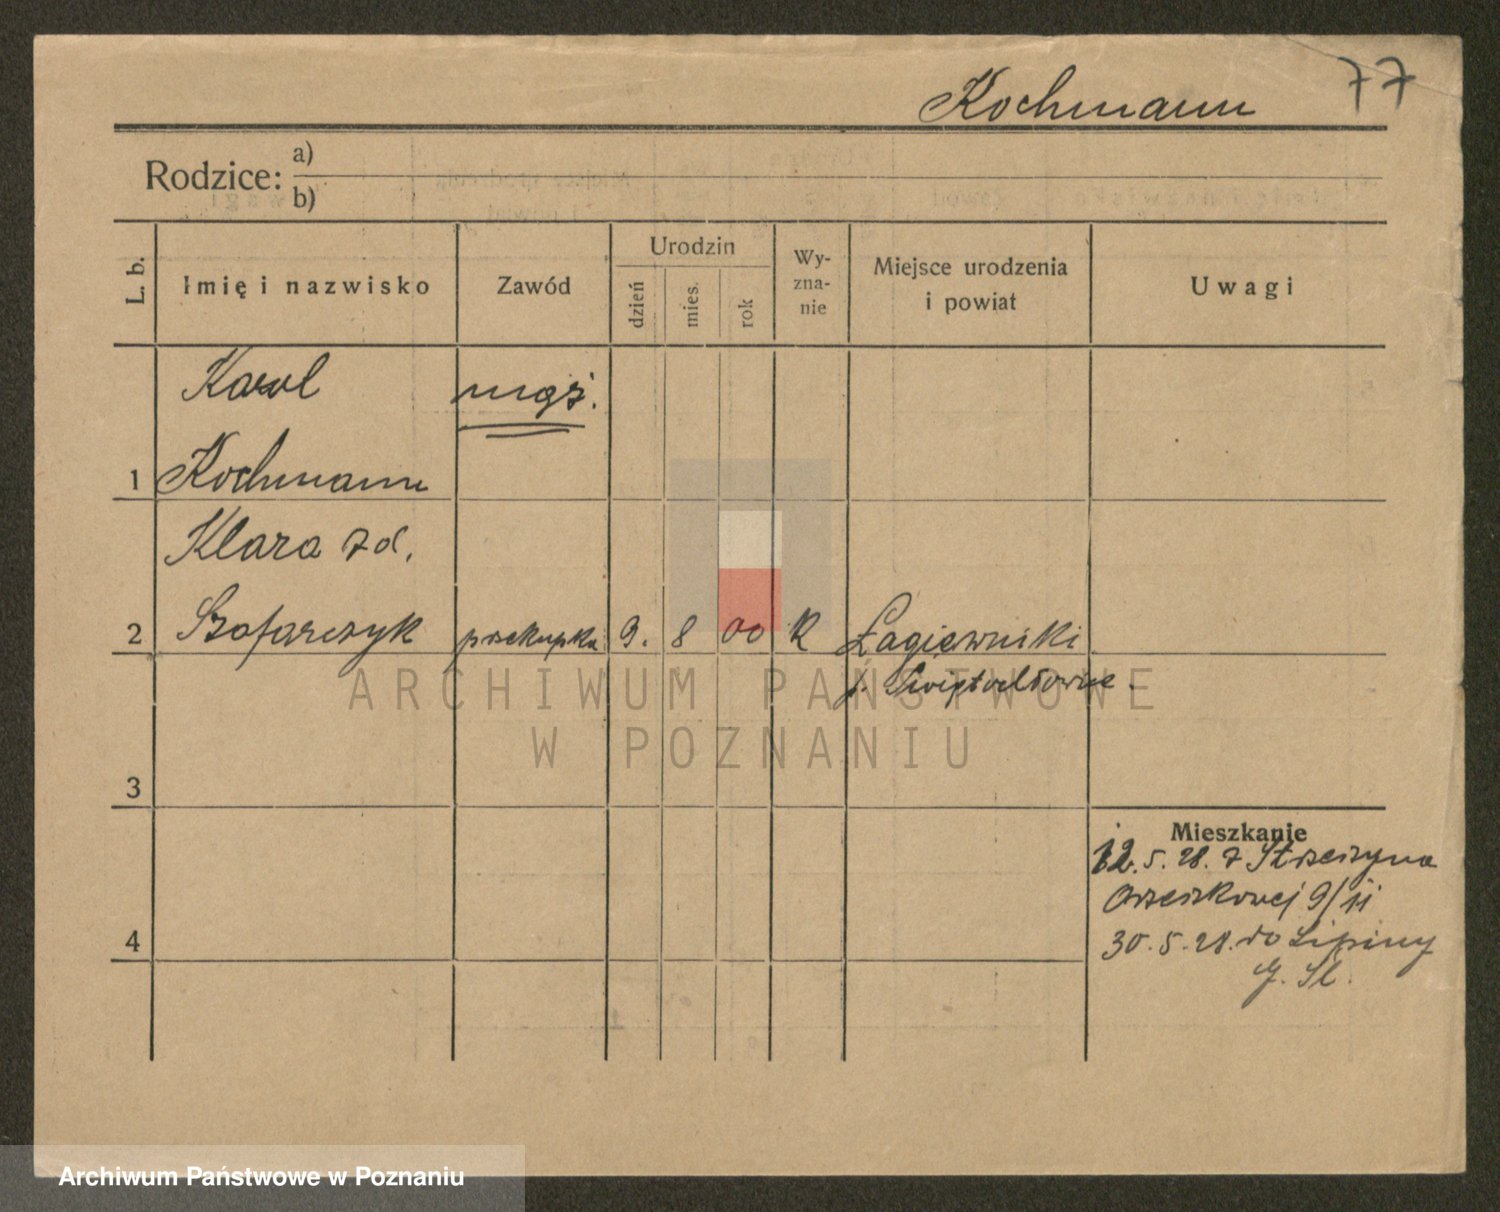 77
Kochmann
Rodzice: a)
b)
L. b.
Imię i nazwisko
Zawód
Urodzin
dzień
mies.
rok
Wy-
zna-
nie
Miejsce urodzenia
i powiat
Uwagi
Karol
mąż.
1
Kochmann
Klara zd.
2
Szafarczyk
przekupka
9.
8
00
K
Łagiewniki
p. Świętochłowice.
3
Mieszkanie
12. 5. 28. z Strzeszyna
Orzeszkowej 9/11
4
30. 5. 28. do Lipiny
G. Śl.
ARCHIWUM PAŃSTWOWE
W POZNANIU
Archiwum Państwowe w Poznaniu